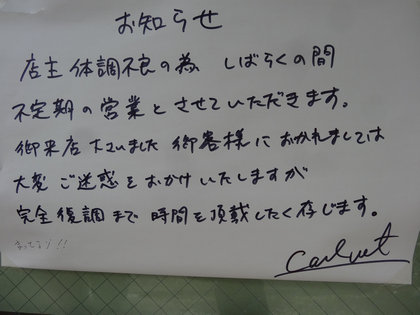 お知らせ
店主 体調不良の為 しばらくの間
不定期の営業とさせていただきます。
御来店下さいました 御客様におかれましては
大変 ご迷惑をおかけいたしますが
完全復調まで 時間を頂戴したく存じます。
まってるゾ!!